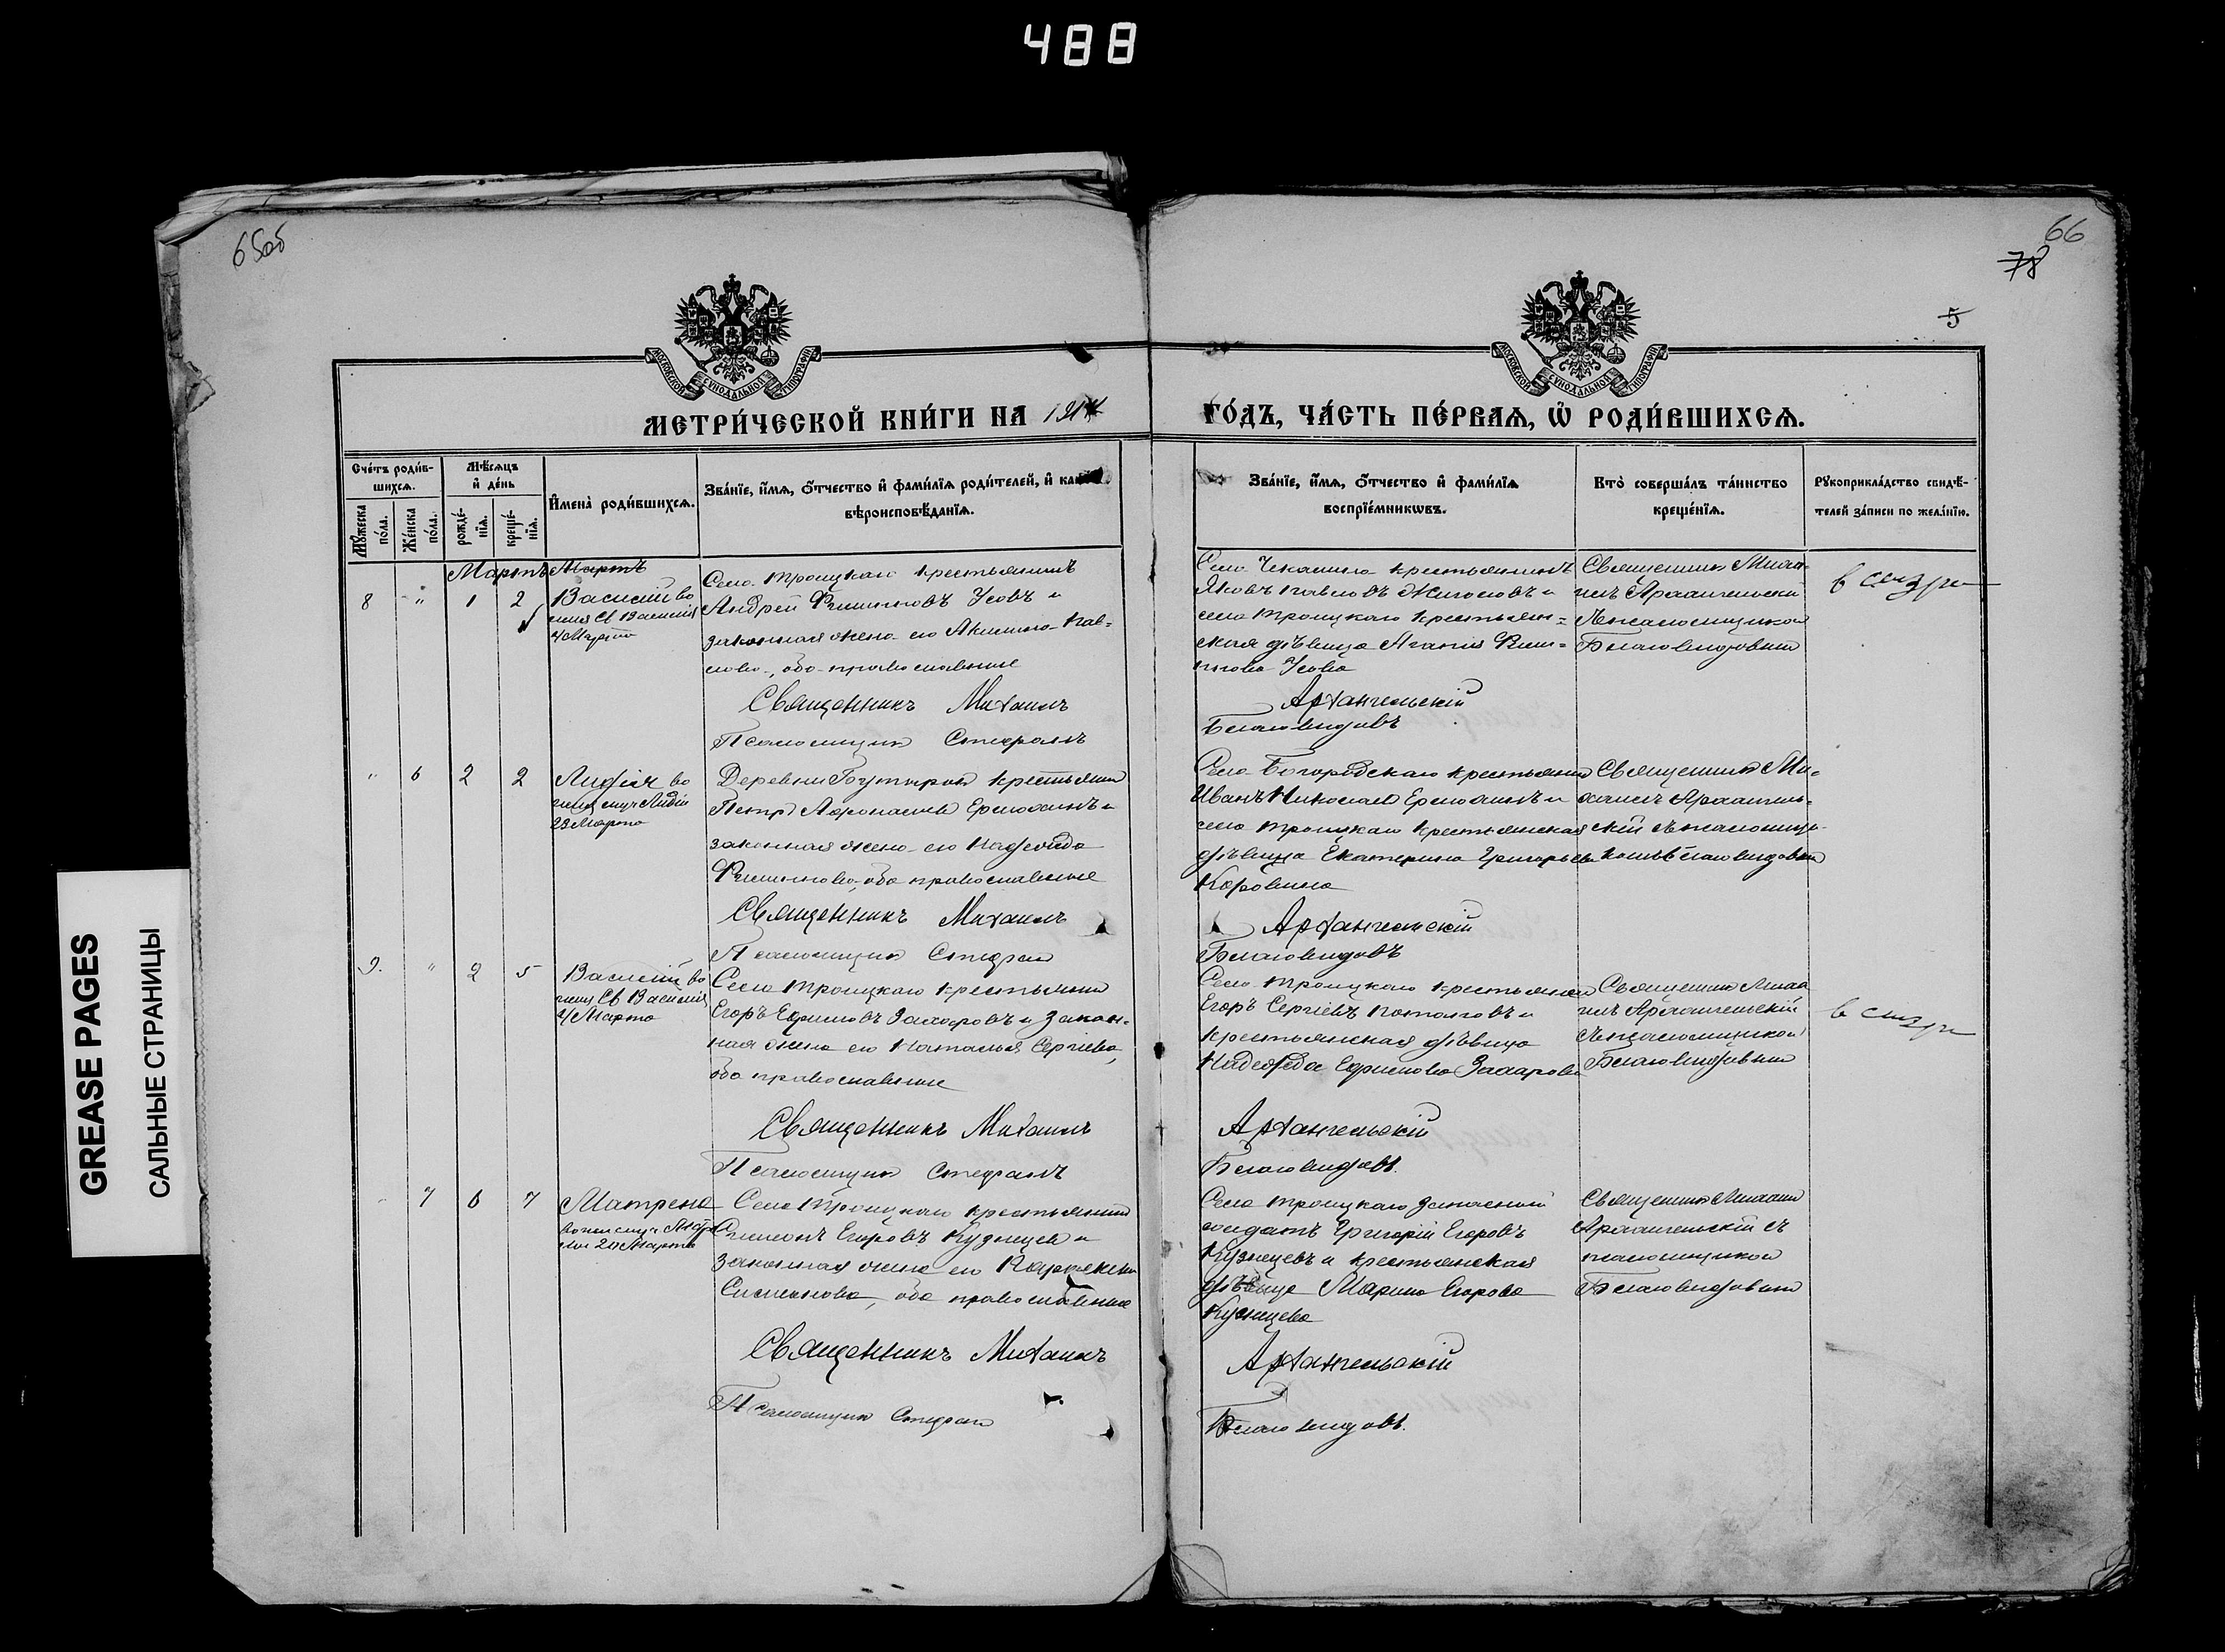 488
65об
66
78
5
МОСКОВСКОЙ СѴНОДАЛЬНОЙ ТИПОГРАФІИ
МОСКОВСКОЙ СѴНОДАЛЬНОЙ ТИПОГРАФІИ
МЕТРИ́ЧЕСКОЙ КНИ́ГИ НА 1914
ГО́ДЪ, ЧА́СТЬ ПЕ́РВАѦ, Ѡ҆ РОДИ́ВШИХСѦ.
Сче́тъ роди́в-
шихсѧ.
Мꙋ́жеска по́ла.
Же́нска по́ла.
Мѣ́сѧцъ и҆ де́нь
рожде́-
нїѧ.
креще́-
нїѧ.
И҆мена̀ роди́вшихсѧ.
Зва́нїе, и҆́мѧ, ѻ҆́тчество и҆ фами́лїѧ роди́телей, и҆
вѣроисповѣ́данїѧ.
Зва́нїе, и҆́мѧ, ѻ҆́тчество и҆ фами́лїѧ
воспрїе́мникѡвъ.
Кто̀ соверша́лъ та́инство
креще́нїѧ.
Рꙋкоприкла́дство свидѣ́-
телей за́писи по жела́нїю.
Мартъ Мартъ
8 " 1 2
Василій во
имя Св Василія
4 Марта
Села Троицкаго крестьянинъ
Андрей Филипповъ Усовъ и
законная жена его Акилина Пав-
лова, оба православные
Священникъ Михаилъ
Псаломщикъ Стефанъ
Яковъ Павловъ
села Троицкаго крестьян-
ская дѣвица Агапія Филип-
пова Усова
Архангельскій
Благовидовъ
Священникъ Миха-
илъ Архангельскій
съ псаломщикомъ
Благовидовымъ
" 6 2 2
Лидія во
имя муч Лидіи
23 Марта
Деревни крестьянинъ
Петръ Афонасьевъ Ермолинъ и
законная жена его
Филиппова, оба православные
Священникъ Михаилъ
Псаломщикъ Стефанъ
Села Богородскаго крестьянинъ
Иванъ Николаевъ Ермолинъ и
села Троицкаго крестьянская
дѣвица Екатерина Григорьева
Коровина
Архангельскій
Благовидовъ
Священникъ Ми-
хаилъ Архангель-
скій съ псаломщи-
комъ Благовидовымъ
9. " 2 5
Василій во
имя Св Василія
4 Марта
Села Троицкаго крестьянинъ
Егоръ Ефимовъ Захаровъ и закон-
ная жена его Наталья Сергіева,
оба православные
Священникъ Михаилъ
Псаломщикъ Стефанъ
Села Троицкаго крестьянинъ
Егоръ Сергіевъ и
крестьянская дѣвица
Надежда Ефимова Захарова
Архангельскій
Благовидовъ.
Священникъ Миха
илъ Архангельскій
съ псаломщикомъ
Благовидовымъ
7 6 7
Матрена
20 Марта
Села Троицкаго крестьянинъ
Симеонъ Егоровъ Кузнецовъ и
законная жена его
Симеонова, оба православные
Священникъ Михаилъ
Псаломщикъ Стефанъ
Села Троицкаго запасный
солдатъ Григорій Егоровъ
Кузнецевъ и крестьянская
дѣвица Марина Егорова
Кузнецева
Архангельскій
Благовидовъ.
Священникъ Михаилъ
Архангельскій съ
псаломщикомъ
Благовидовымъ
GREASE PAGES
САЛЬНЫЕ СТРАНИЦЫ